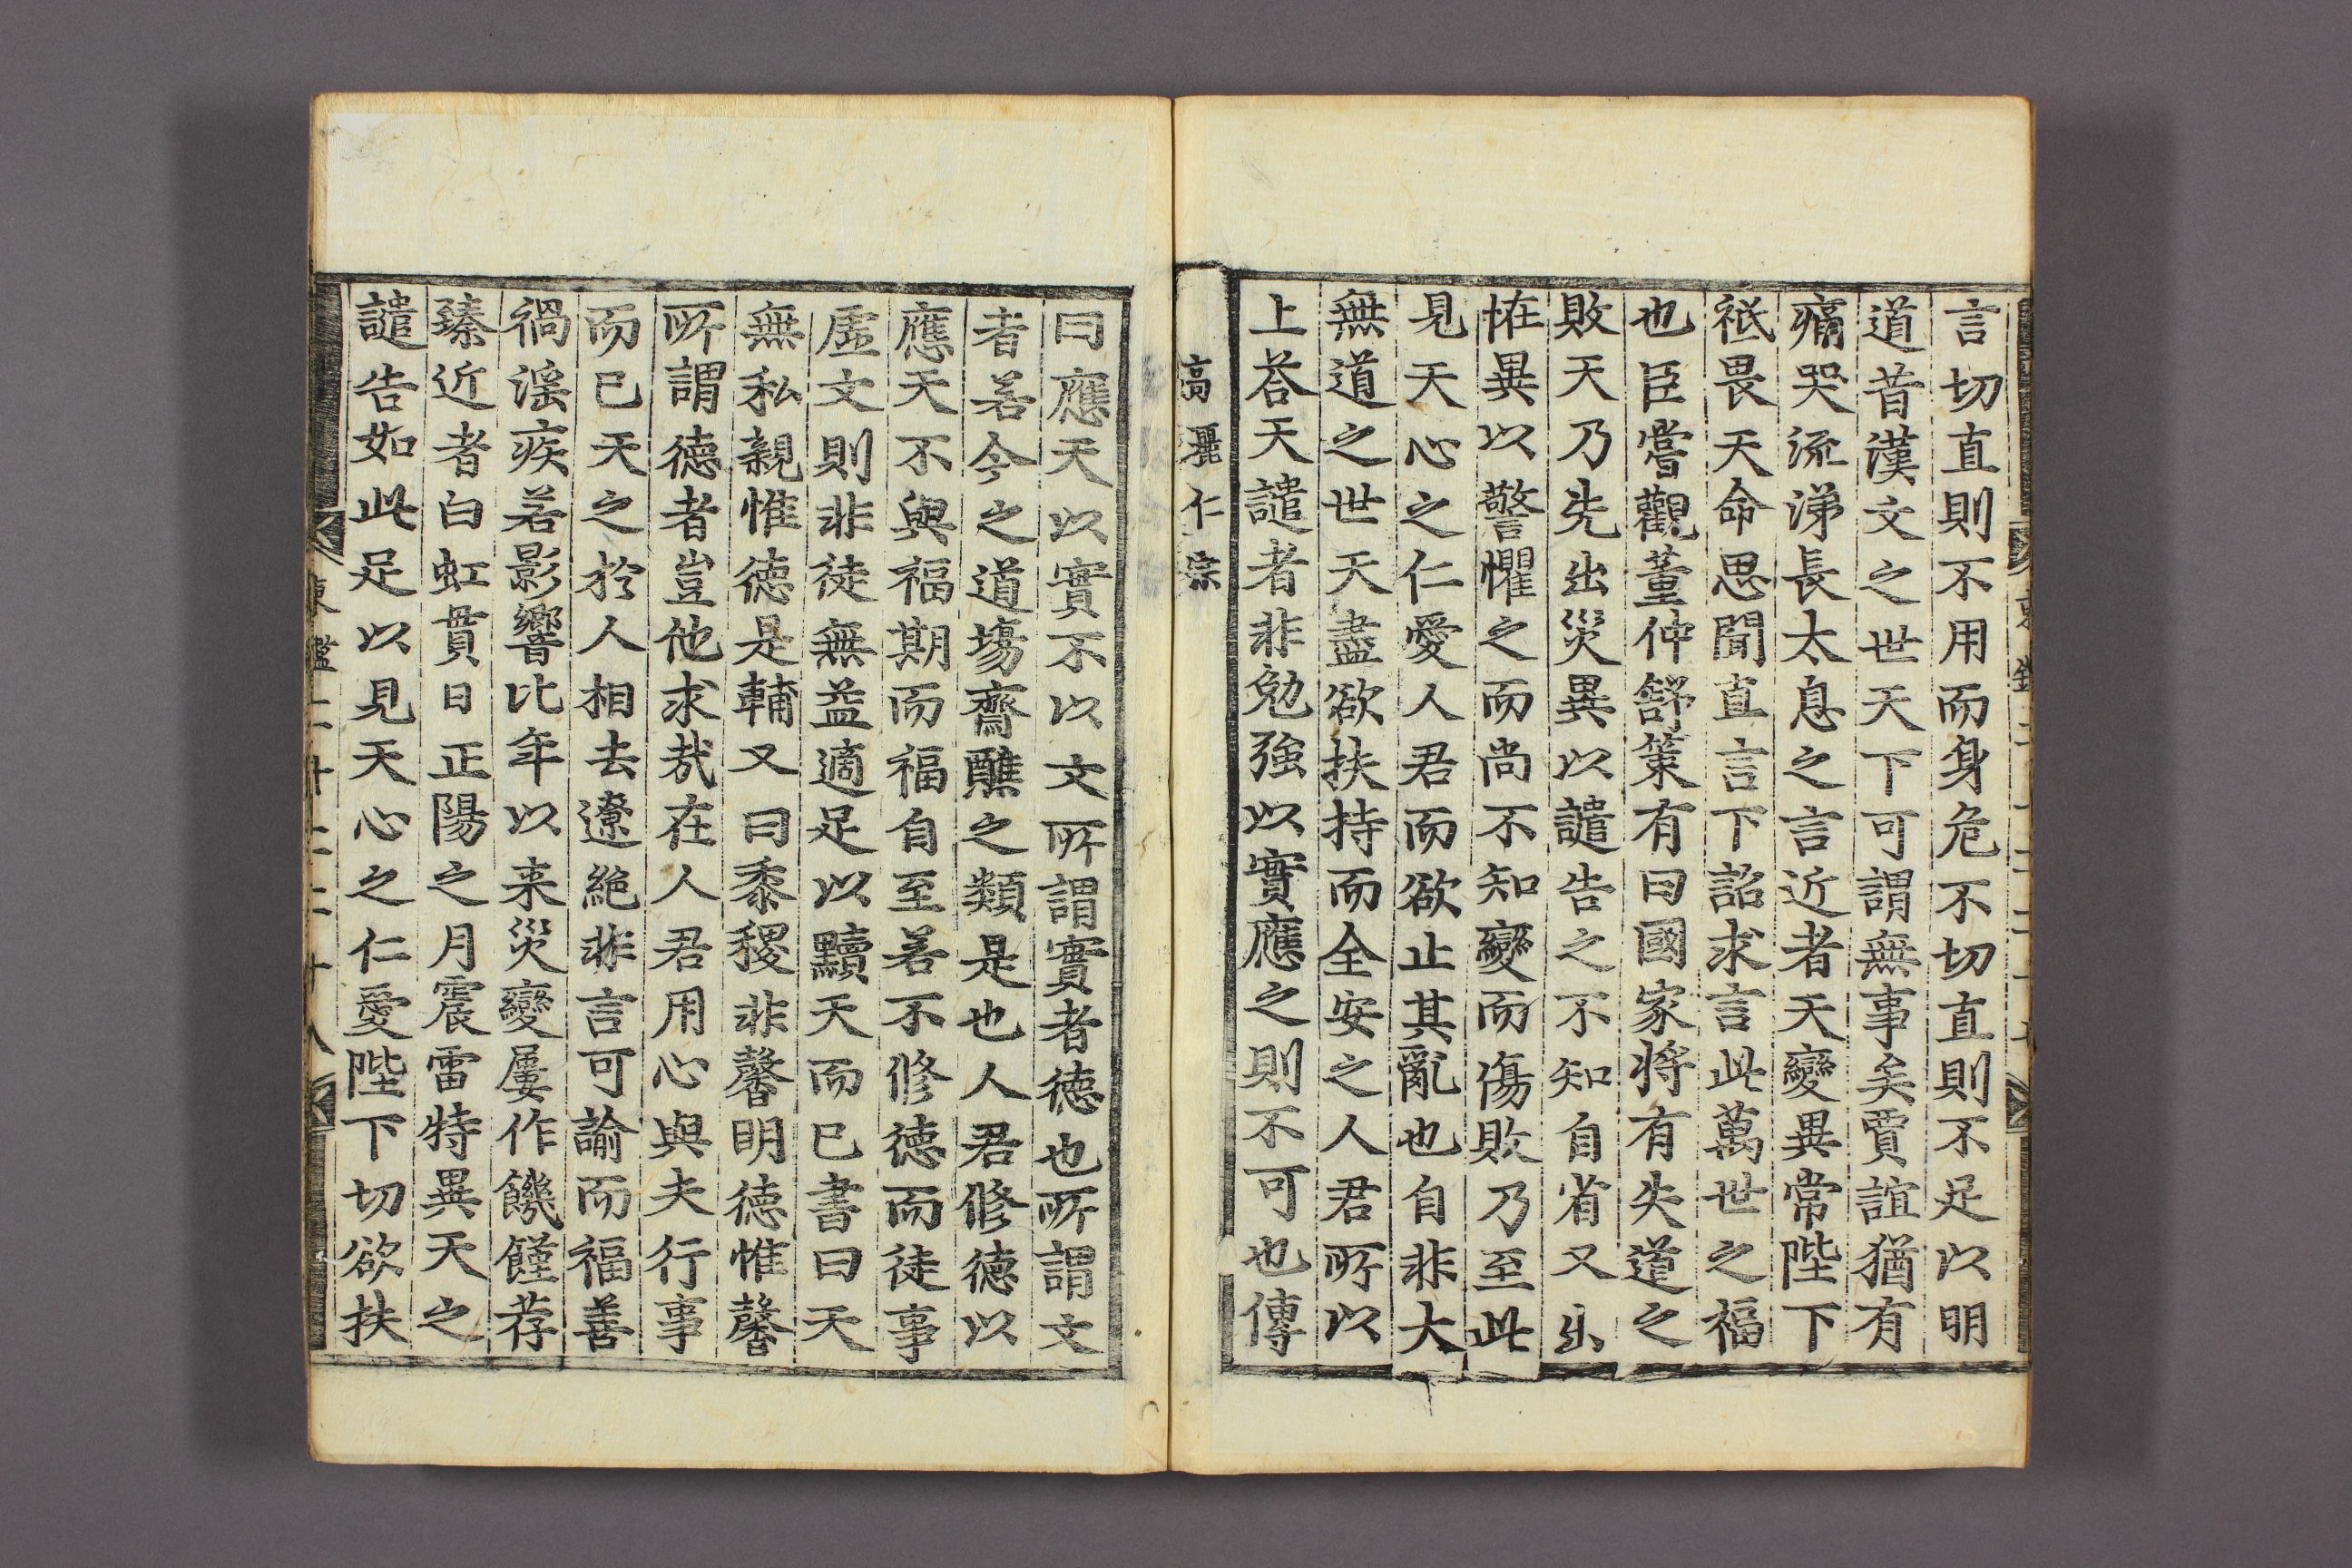 言切直則不用而身危不切直則不足以明
道昔漢文之世天下可謂無事矣賈誼猶有
痛哭流涕長太息之言近者天變異常陛下
祗畏天命思聞直言下詔求言此萬世之福
也臣嘗觀董仲舒策有曰國家將有失道之
敗天乃先出災異以譴告之不知自省又出
恠異以警懼之而尚不知變而傷敗乃至此
見天心之仁愛人君而欲止其亂也自非大
無道之世天盡欲扶持而全安之人君所以
上荅天譴者非勉強以實應之則不可也傳
高麗仁宗
曰應天以實不以文所謂實者德也所謂文
者若今之道場齋醮之類是也人君修德以
應天不與福期而福自至若不修德而徒事
虛文則非徒無益適足以黷天而已書曰天
無私親惟德是輔又曰黍稷非馨明德惟馨
所謂德者豈他求哉在人君用心與夫行事
而已天之於人相去遼絕非言可諭而福善
禍滛疾若影響比年以来災變屢作饑饉荐
臻近者白虹貫日正陽之月震雷特異天之
譴告如此足以見天心之仁愛陛下切欲扶
東鑑二十二 二十八